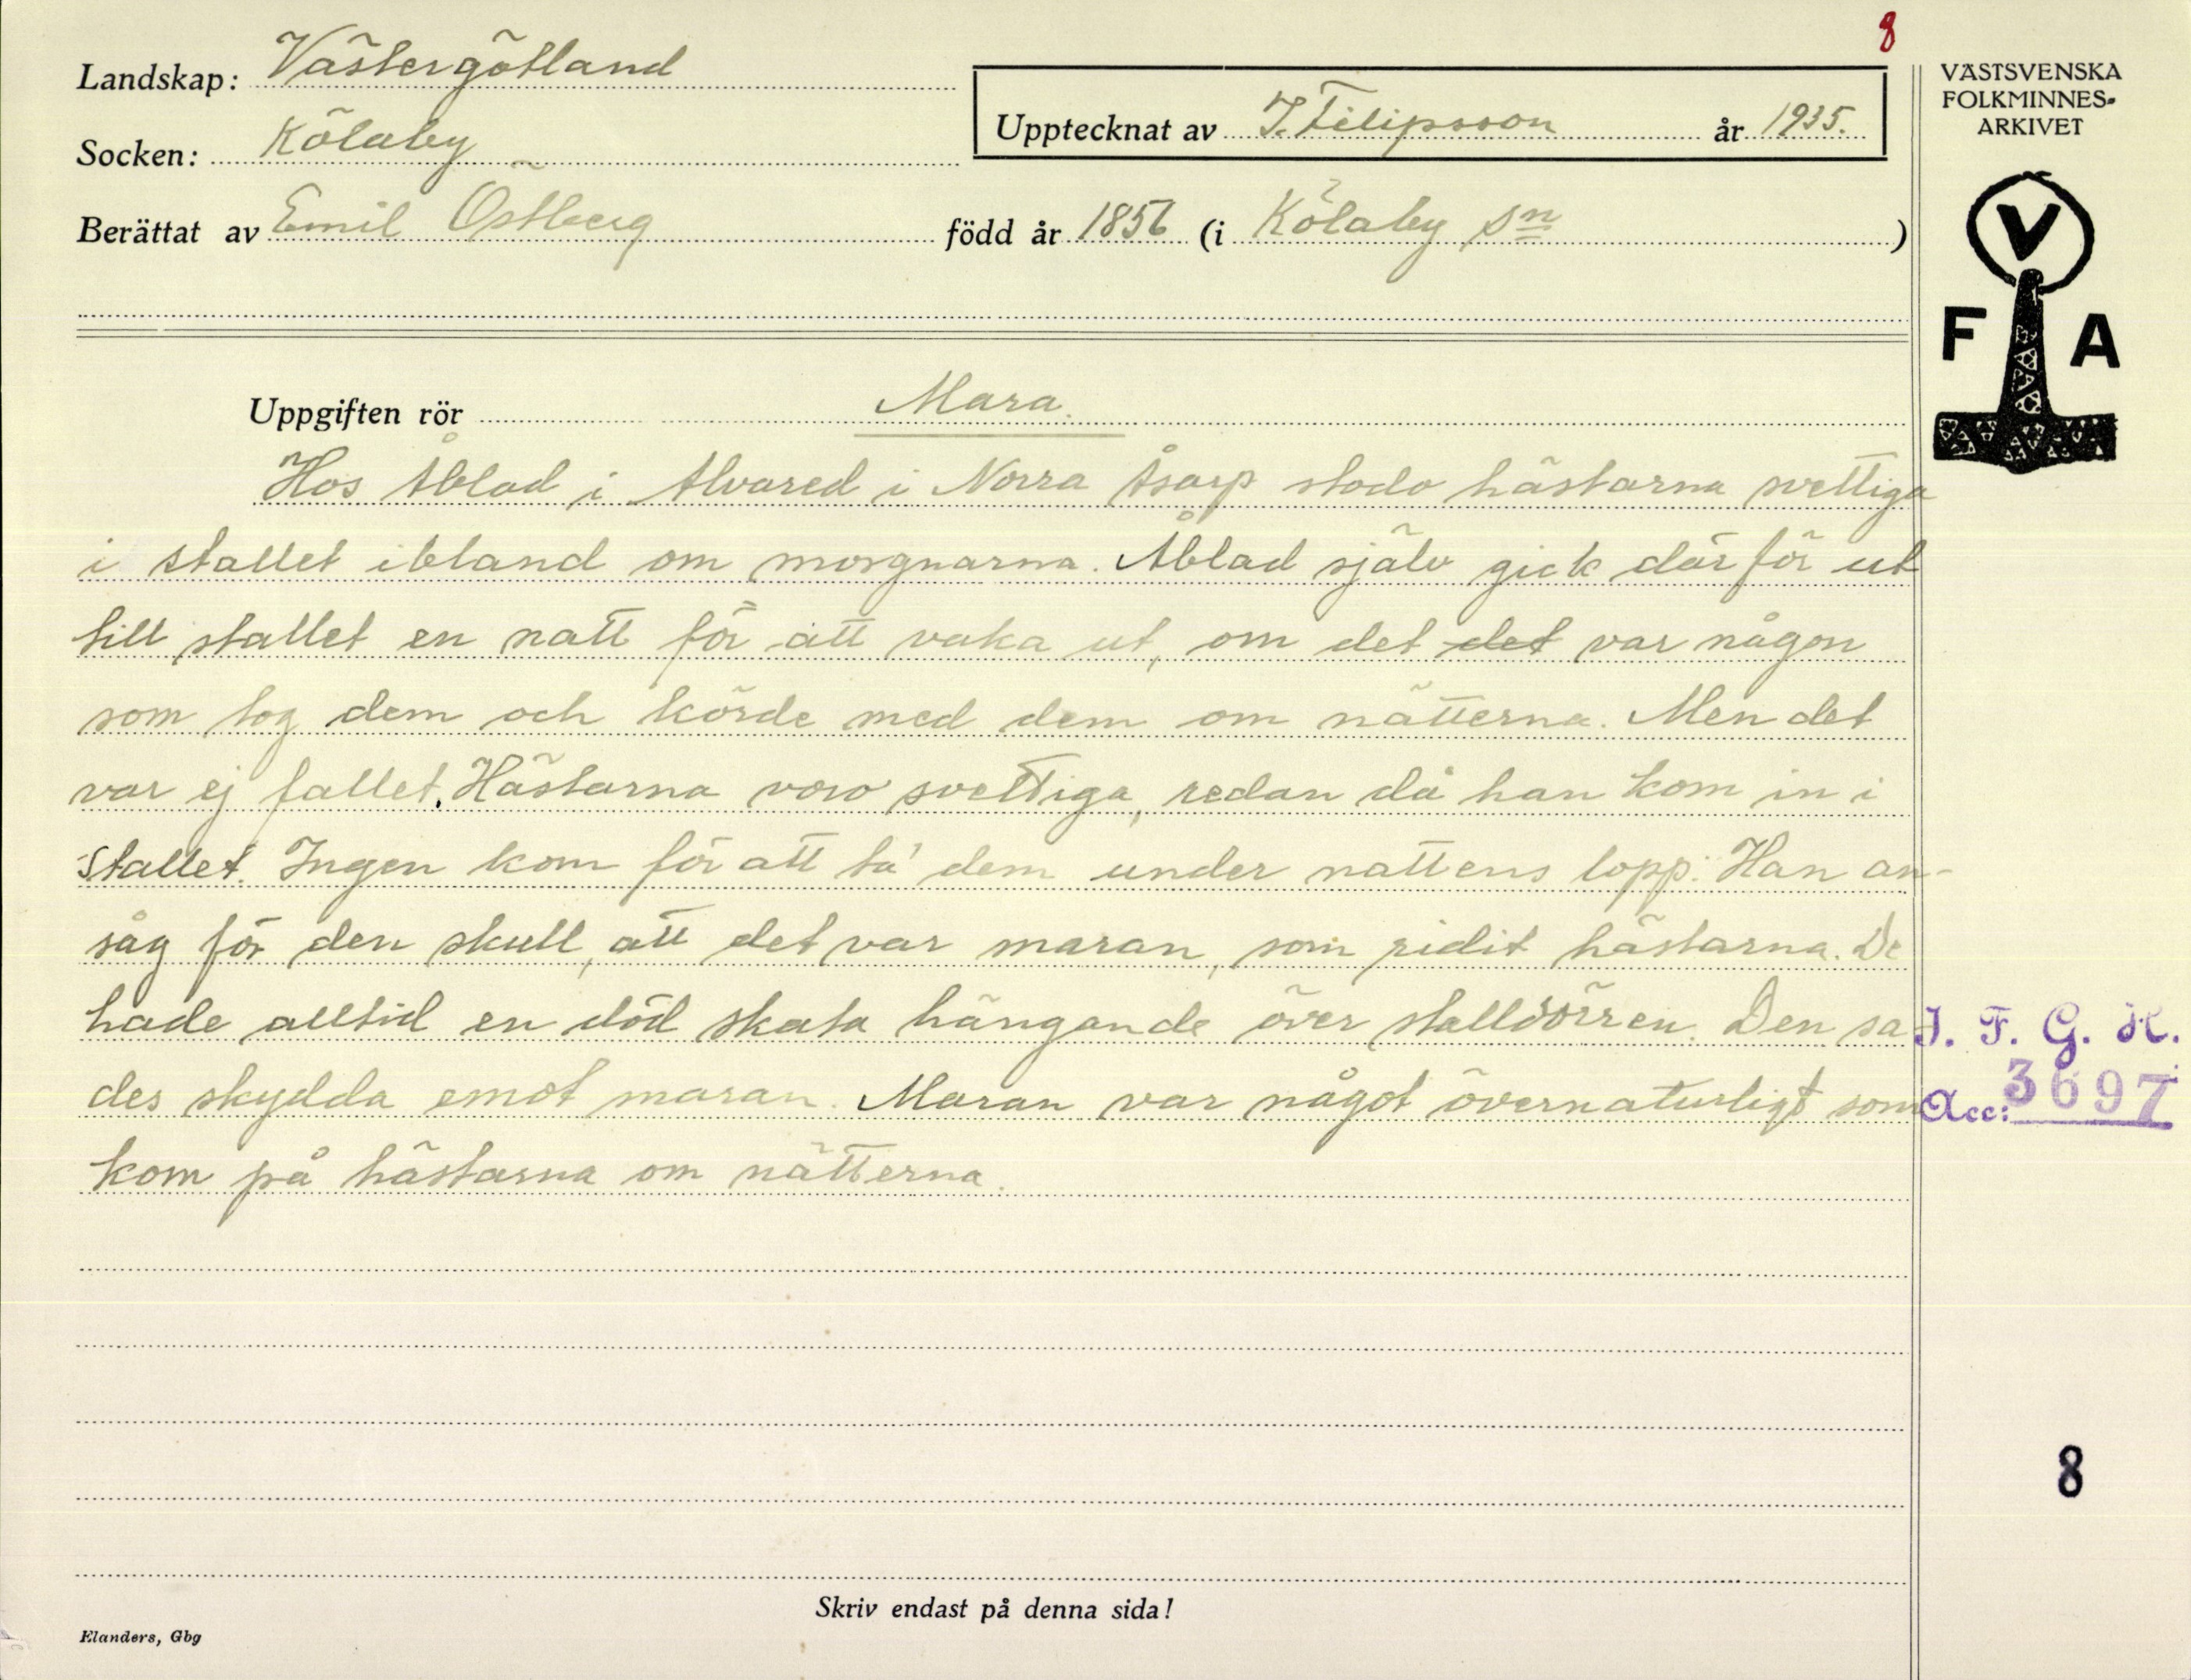 8
Landskap: Västergötland
Upptecknat av J. Filipsson år 1935.
Socken: Kölaby
Berättat av Emil Östberg född år 1856 (i Kölaby sn )
VÄSTSVENSKA
FOLKMINNES-
ARKIVET
V
F A
Uppgiften rör Mara.
Hos Åblad i Alvared i Norra Åsarp stodo hästarna svettiga
i stallet ibland om morgnarna. Åblad själv gick därför ut
till stallet en natt för att vaka ut, om det det var någon
som tog dem och körde med dem om nätterna. Men det
var ej fallet. Hästarna voro svettiga, redan då han kom in i
stallet. Ingen kom för att ta' dem under nattens lopp. Han an-
såg för den skull, att det var maran, som ridit hästarna. De
hade alltid en död skata hängande över stalldörren. Den sa
des skydda emot maran. Maran var något övernaturligt som
kom på hästarna om nätterna.
I. F. G. H.
Acc: 3697
8
Skriv endast på denna sida!
Elanders, Gbg